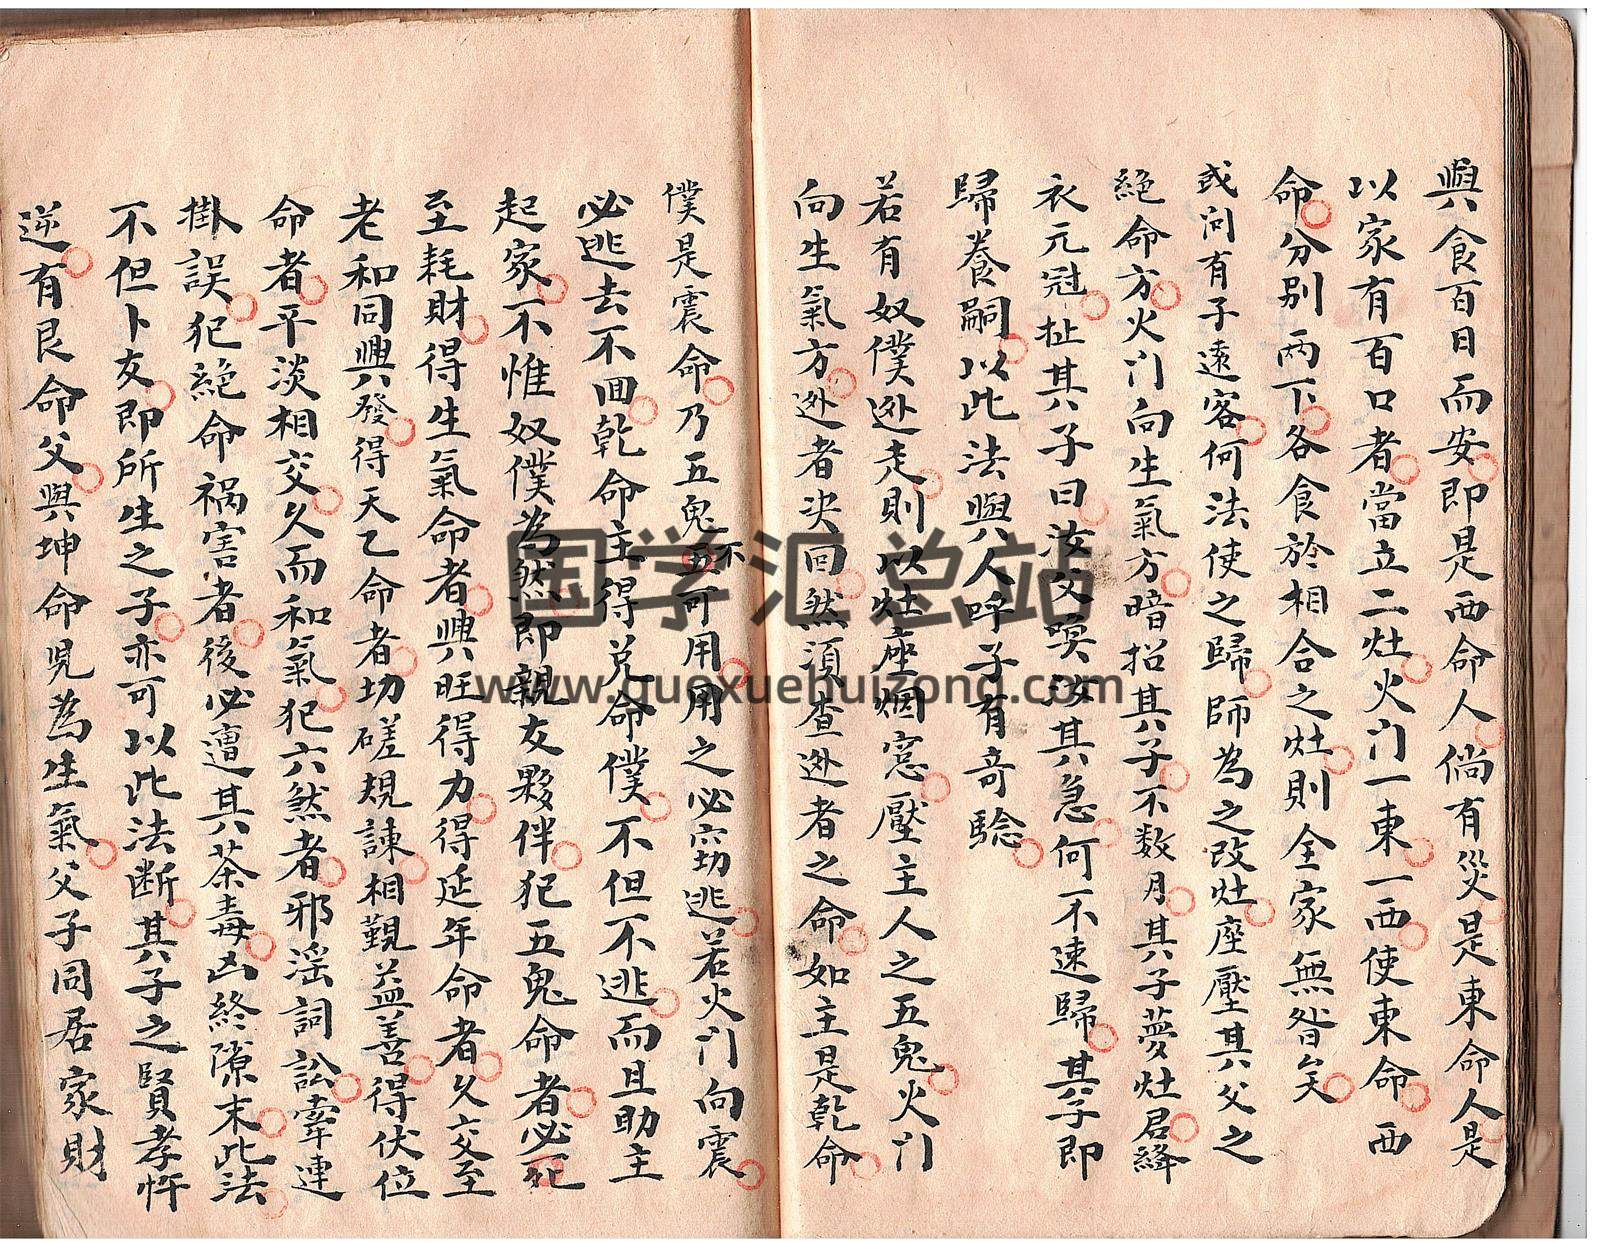 與食百日而安即是西命人倘有災是東命人是
以家有百口者當立二灶火门一東一西使東命西
命分别两下各食於相合之灶則全家無咎矣
或问有子遠客何法使之歸師為之改灶座壓其父之
絕命方火门向生氣方暗招其子不数月其子夢灶君絳
衣元冠扯其子曰汝父喚汝其急何不速歸其子即
歸養嗣以此法與人呼子有奇騐
若有奴僕逃走則以灶座烟窓壓主人之五鬼火门
向生氣方逃者决回然須查逃者之命如主是乾命
僕是震命乃五鬼不可用用之必窃逃若火门向震
必逃去不回乾命主得兑命僕不但不逃而且助主
起家不惟奴僕為然即親友夥伴犯五鬼命者必死
至耗財得生氣命者興旺得力得延年命者久交至
老和同興發得天乙命者切磋規諫相觀益善得伏位
命者平淡相交久而和氣犯六煞者邪淫詞訟牽連
掛誤犯絕命祸害者後必遭其茶毒凶終隙末此法
不但卜友即所生之子亦可以此法断其子之賢孝忤
逆有艮命父與坤命児為生氣父子同居家財
国学汇总站
www.guoxuehuizong.com